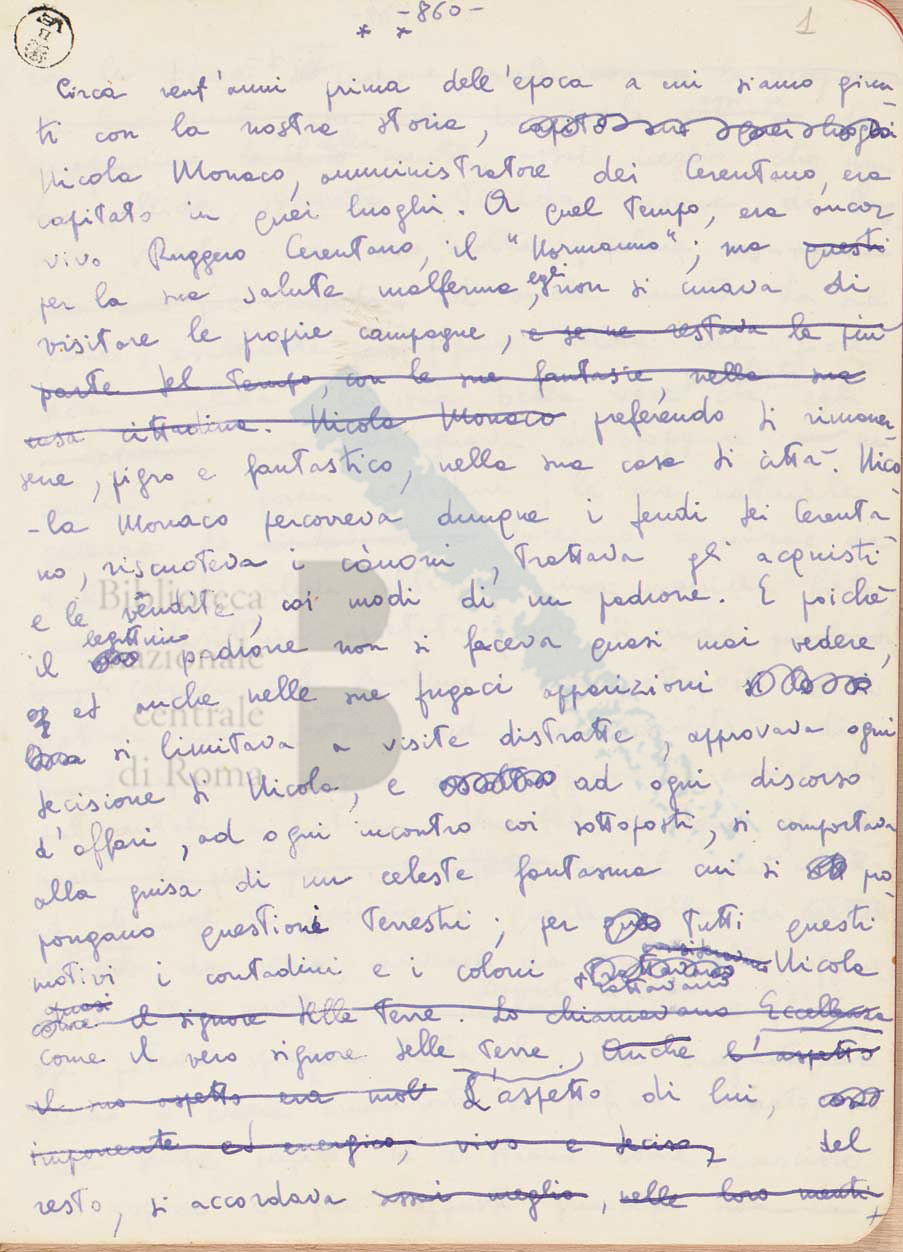 -860-
1
* *
Circa vent'anni prima dell'epoca a cui siamo giun-
ti con la nostra storia, capitò in quei luoghi
Nicola Monaco, amministratore dei Cerentano, era
capitato in quei luoghi. A quel tempo, era ancor
vivo Ruggero Cerentano, il "Normanno"; ma questi
per la sua salute malferma, egli non si curava di
visitare le proprie campagne, e se ne restava la più
parte del tempo, con le sue fantasie, nella sua
casa cittadina. Nicola Monaco preferendo di rimaner-
sene, pigro e fantastico, nella sua casa di città. Nico-
-la Monaco percorreva dunque i feudi dei Cerenta-
no, riscuoteva i cànoni, trattava gli acquisti
e le vendite, coi modi di un padrone. E poiché
legittimo
il padrone non si faceva quasi mai vedere,
ed anche nelle sue fugaci apparizioni
si limitava a visite distratte, approvava ogni
decisione di Nicola, e ad ogni discorso
d'affari, ad ogni incontro coi sottoposti, si comportava
alla guisa di un celeste fantasma cui si pro-
pongano questioni terrestri; per tutti questi
motivi i contadini e i coloni consideravano Nicola
trattavano
quasi
come il signore delle terre. Lo chiamavano Eccellenza
come il vero signore delle terre. Anche l'aspetto
il suo aspetto era molt L'aspetto di lui,
imponente ed energico, vivo e deciso, del
resto, si accordava assai meglio, nelle loro menti
Biblioteca
nazionale
centrale
di Roma